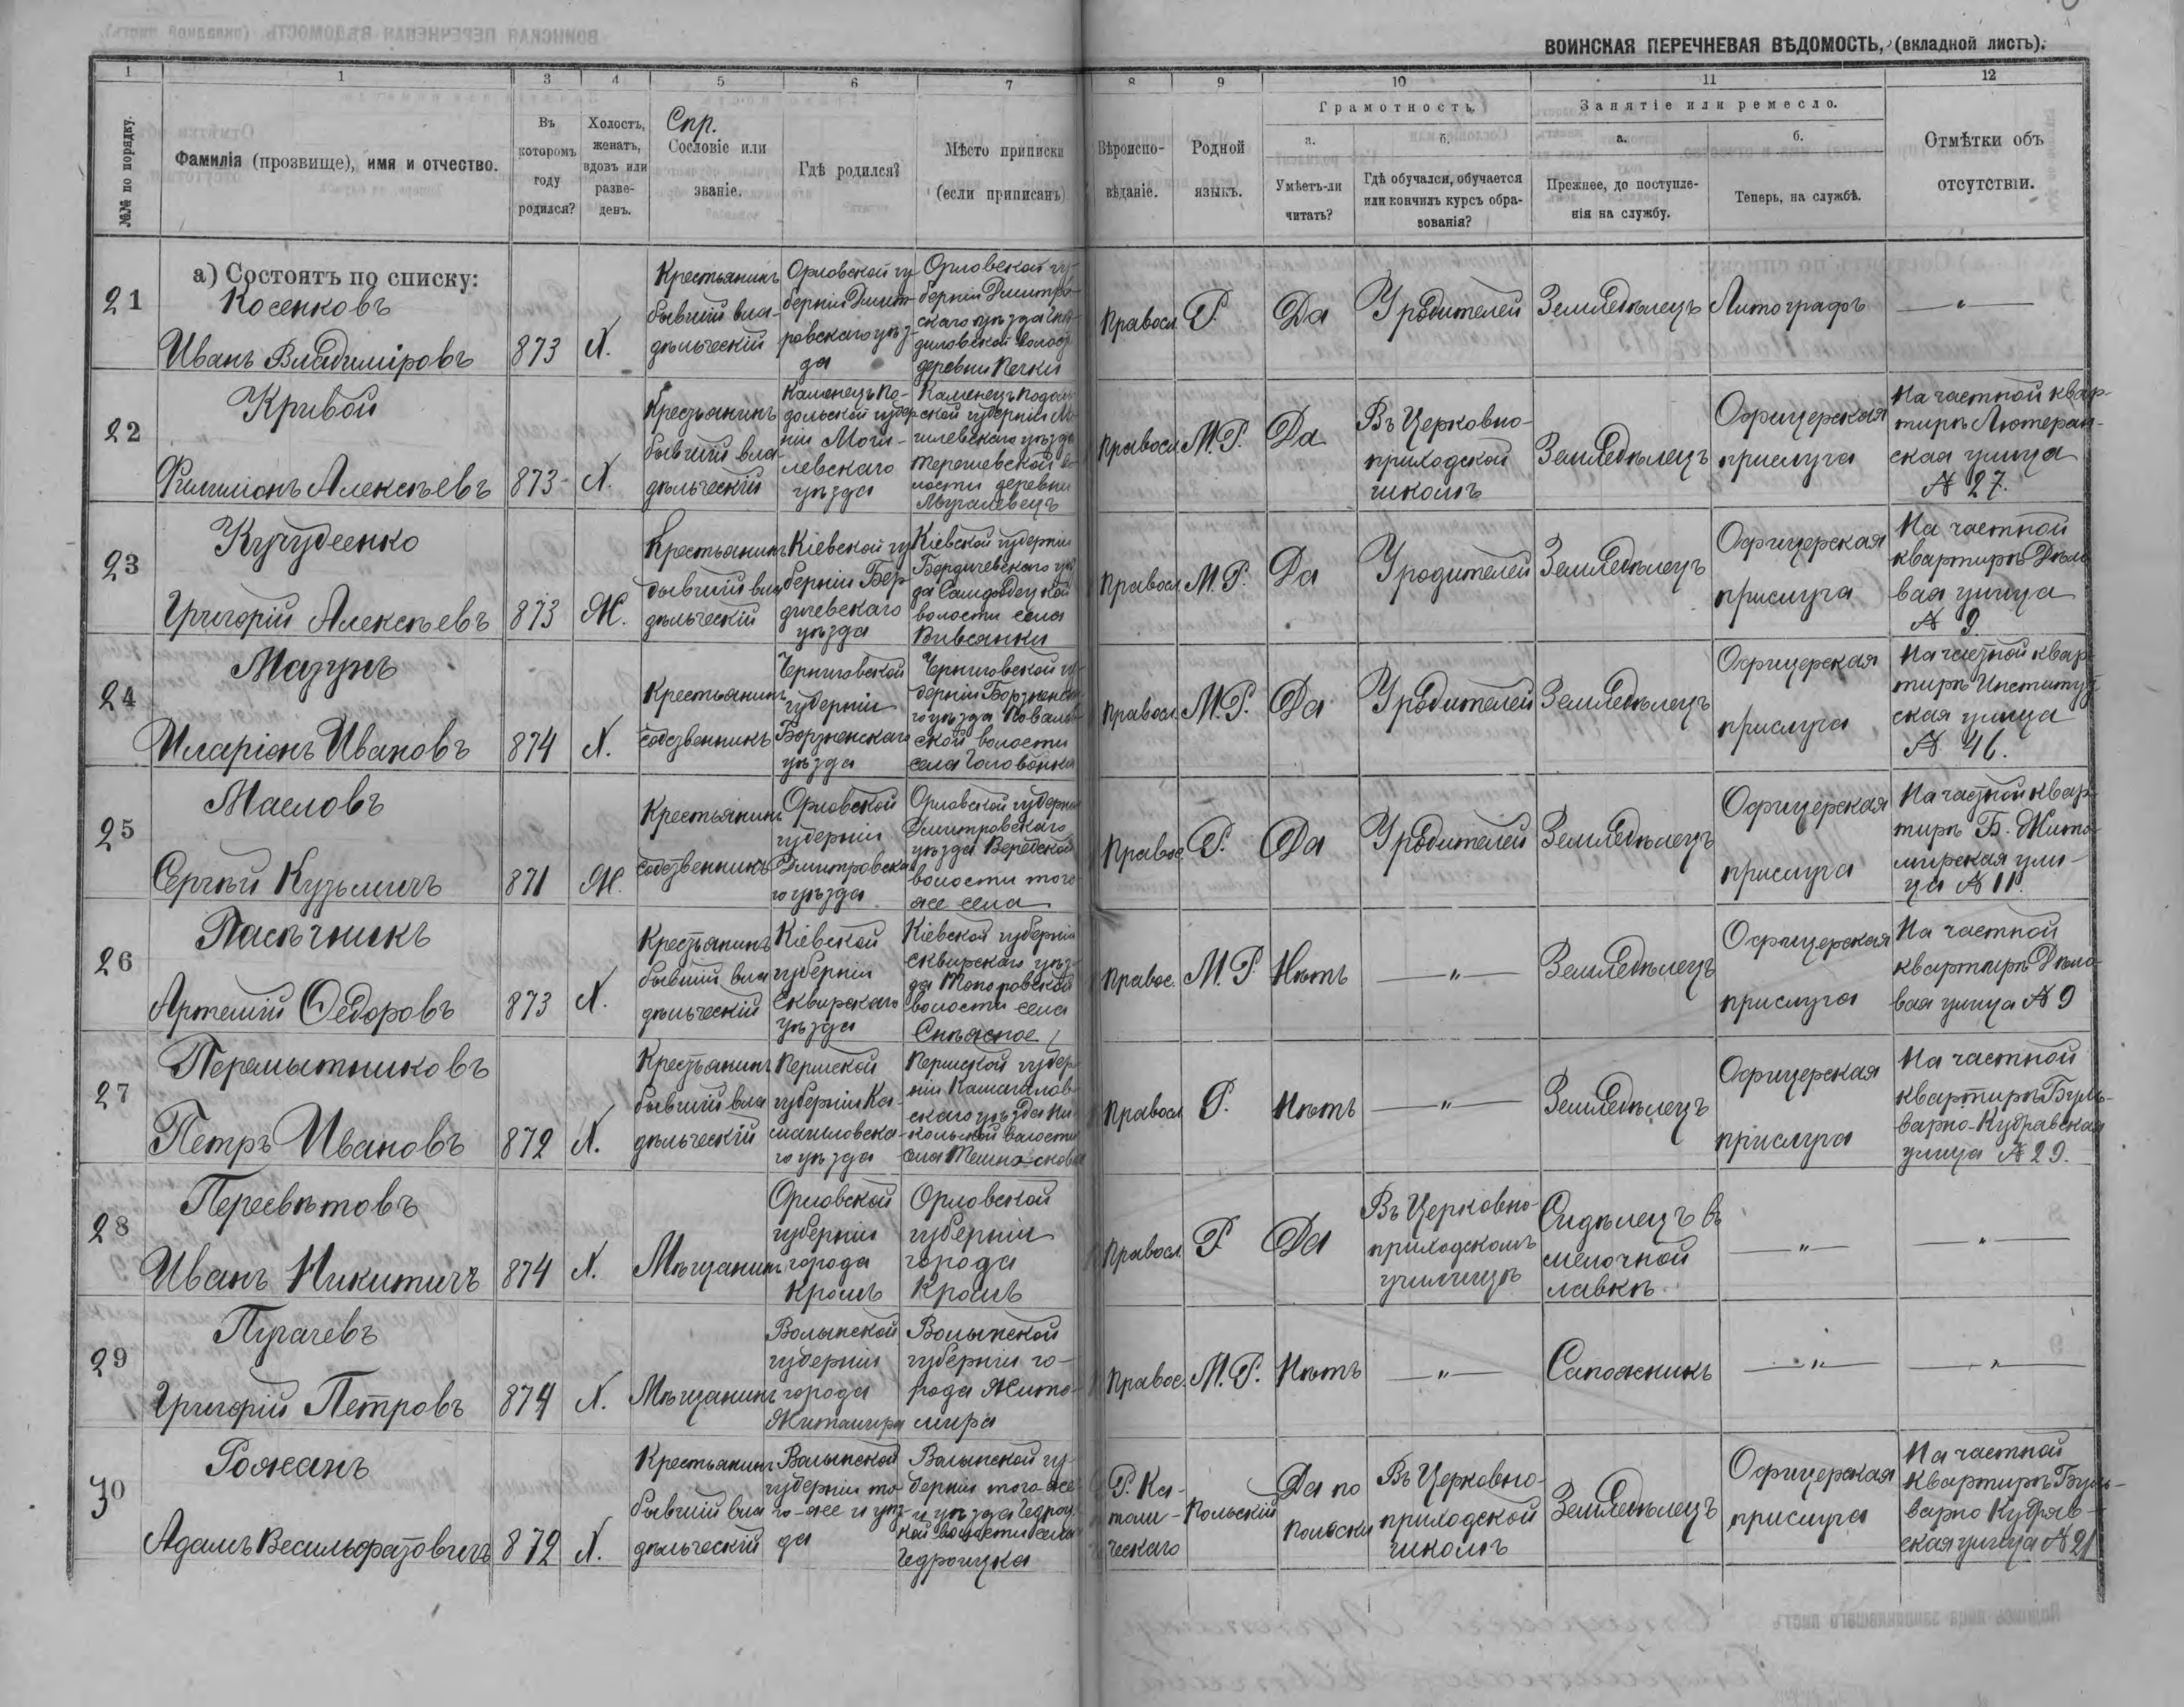 ВОИНСКАЯ ПЕРЕЧНЕВАЯ ВѢДОМОСТЬ, (вкладной листъ).
1 1 3 4 5 6 7 8 9 10 11 12
№№ по порядку.
Фамилія (прозвище), имя и отчество.
Въ
которомъ
году
родился?
Холостъ,
женатъ,
вдовъ или
разве-
денъ.
Спр.
Сословіе или
званіе.
Гдѣ родился?
Мѣсто приписки
(если приписанъ)
Вѣроиспо-
вѣданіе.
Родной
языкъ.
Грамотность.
а.
Умѣетъ-ли
читать?
б.
Гдѣ обучался, обучается
или кончилъ курсъ обра-
зованія?
Занятіе или ремесло.
а.
Прежнее, до поступле-
нія на службу.
б.
Теперь, на службѣ.
Отмѣтки объ
отсутствіи.
а) Состоятъ по списку:
21
Косенковъ
Иванъ Владиміровъ
873
Х.
Крестьянинъ
бывшій вла-
дѣльческій
Орловской гу-
берніи Дмит-
ровскаго уѣз-
да
Орловской гу-
берніи Дмитров-
скаго уѣзда
волос
деревни
Правосл.
Р.
Да
У родителей
Земледѣлецъ
Литографъ
— " —
22
Кривой
Филимонъ Алексѣевъ
873
Х.
Крестьянинъ
бывшій вла-
дѣльческій
Каменецъ По-
дольской губер-
ніи Моги-
левскаго
уѣзда
Каменецъ Подоль-
ской губерніи Мо-
гилевскаго уѣзда
во-
лости деревни
Правосл.
М.Р.
Да
Въ Церковно-
приходской
школѣ
Земледѣлецъ
Офицерская
прислуга
На частной квар-
тирѣ Лютеран-
ская улица
№ 27.
23
Кучудеенко
Григорій Алексѣевъ
873
Ж.
Крестьянинъ
бывшій вла
дѣльческій
Кіевской гу
берніи Бер
дичевскаго
уѣзда
Кіевской губерніи
Бердичевскаго уѣз
да
волости села
Правосл.
М.Р.
Да
У родителей
Земледѣлецъ
Офицерская
прислуга
На частной
квартирѣ Дѣло
вая улица
№ 9
24
Мазунъ
Иларіонъ Ивановъ
874
Х.
Крестьянинъ
собственникъ
Черниговской
губерніи
Борзненскаго
уѣзда
Черниговской гу
берніи Борзненска
го уѣзда
ской волости
села Головеньки
Правосл.
М.Р.
Да
У родителей
Земледѣлецъ
Офицерская
прислуга
На частной квар
тирѣ Институт
ская улица
№ 46.
25
Масловъ
Сергѣй Кузьмичъ
871
Ж.
Крестьянинъ
собственникъ
Орловской
губерніи
Дмитровска
го уѣзда
Орловской губерніи
Дмитровскаго
уѣзда
волости того
же села
Правос.
Р.
Да
У родителей
Земледѣлецъ
Офицерская
прислуга
На частной квар
тирѣ Б. Жито-
мирская ули-
ца № 11.
26
Пасѣчникъ
Артемій Федоровъ
873
Х.
Крестьянинъ
бывшій вла
дѣльческій
Кіевской
губерніи
Сквирскаго
уѣзда
Кіевской губерніи
Сквирскаго уѣз-
да Топоровской
волости села
Правос.
М.Р.
Нѣтъ
— " —
Земледѣлецъ
Офицерская
прислуга
На частной
квартирѣ Дѣло
вая улица № 9
27
Перемытниковъ
Петръ Ивановъ
872
Х.
Крестьянинъ
бывшій вла
дѣльческій
Пермской
губерніи Ка-
мышловска-
го уѣзда
Пермской губер
ніи Камышлов-
скаго уѣзда Ни
кольской волости
села
Правосл.
Р.
Нѣтъ
— " —
Земледѣлецъ
Офицерская
прислуга
На частной
квартирѣ Буль-
варно-Кудравская
улица № 29.
28
Пересвѣтовъ
Иванъ Никитичъ
874
Х.
Мѣщанинъ
Орловской
губерніи
города
Кромъ
Орловской
губерніи
города
Кромъ
Правосл.
Р
Да
Въ Церковно-
приходскомъ
училищѣ
Сидѣлецъ въ
мелочной
лавкѣ
— " —
— " —
29
Пугачевъ
Григорій Петровъ
874
Х.
Мѣщанинъ
Волынской
губерніи
города
Житомира
Волынской
губерніи го-
рода Жито-
мира
Правос.
М.Р.
Нѣтъ
— " —
Сапожникъ
— " —
— " —
30
Рожанъ
Адамъ
872
Х.
Крестьянинъ
бывшій вла
дѣльческій
Волынской
губерніи то
го-же и уѣз
да
Волынской гу-
берніи того-же
и уѣзда
волости села
Р. Ка-
толи-
ческаго
Польскій
Да по
польски
Въ Церковно-
приходской
школѣ
Земледѣлецъ
Офицерская
прислуга
На частной
квартирѣ Буль-
варно Кудряв-
ская улица № 21